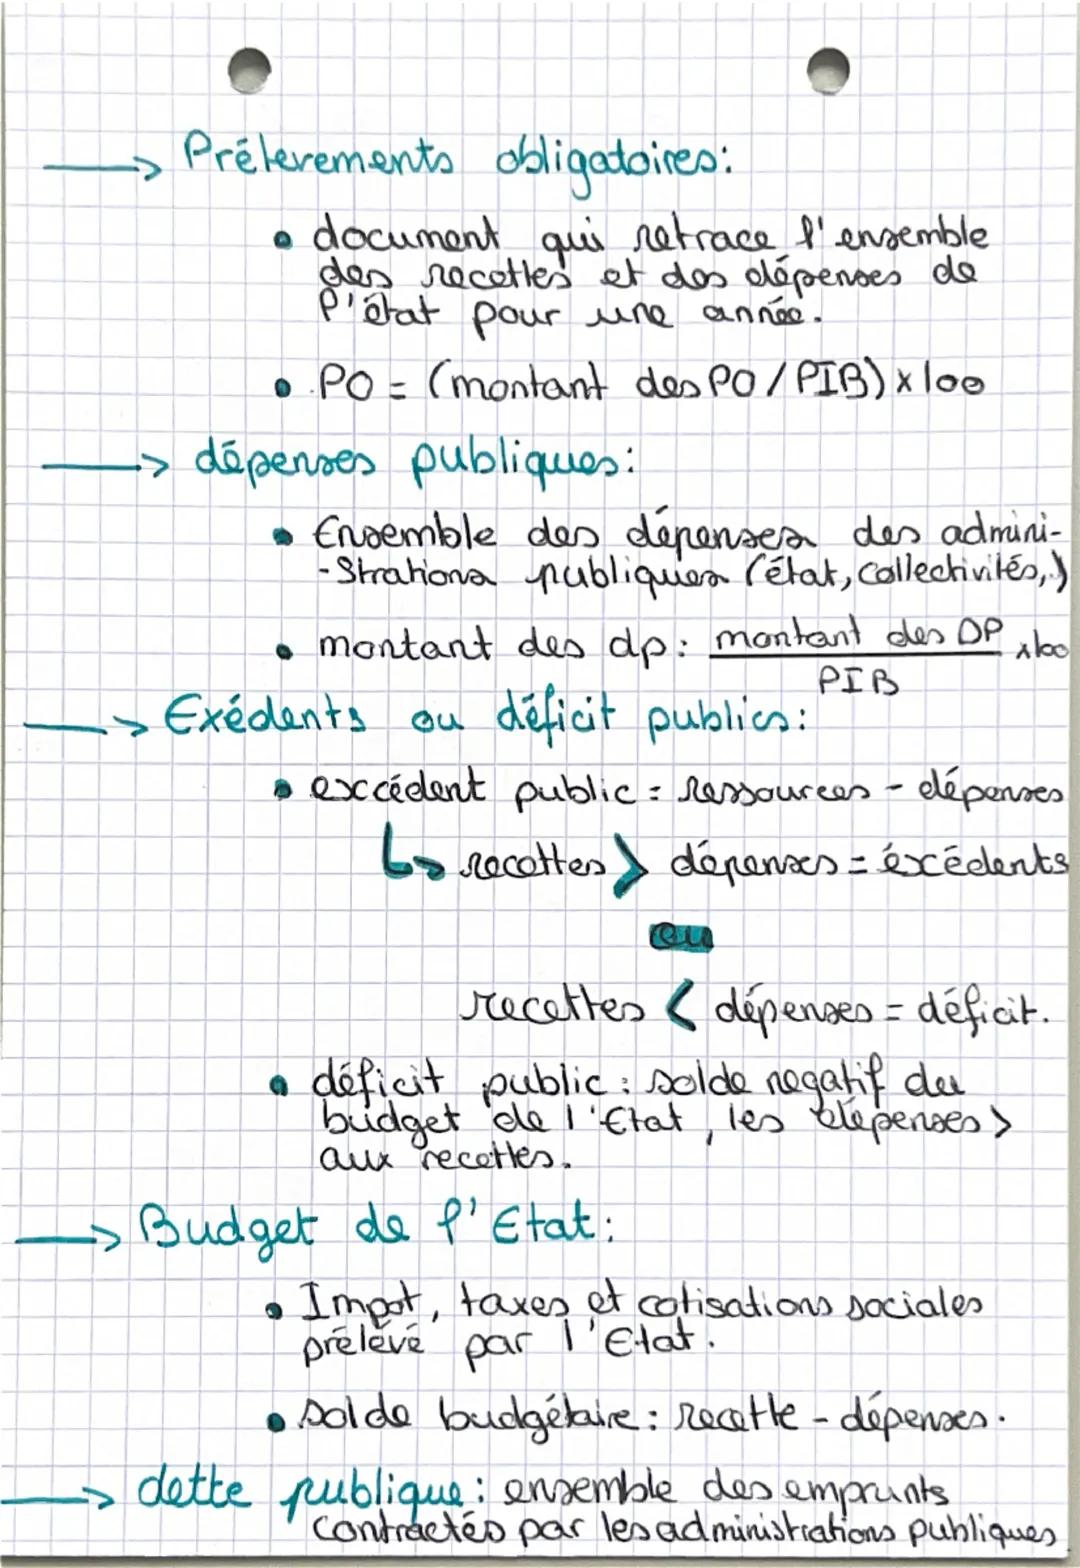 → Prélevements obligatoires:
• document qui retrace l'ensemble
des recettes et des dépenses de
l'état pour une année.
• PO = (montant des PO / PIB) x 100
→ dépenses publiques:
• Ensemble des dépenses des admini-
-strations publiques (état, collectivités,.)
• montant des dp: montant des DP x100
PIB
→ Exédents ou déficit publics:
• excédent public = ressources - dépenses
↳ recettes > dépenses = éxcédents
ou
recettes < dépenses = déficit.
• déficit public: solde negatif du
budget de l'Etat, les dépenses >
aux recettes.
→ Budget de l'Etat:
• Impot, taxes et cotisations sociales
prélevé par l'Etat.
• solde budgétaire: recette - dépenses.
→ dette publique: ensemble des emprunts
contractés par les administrations publiques